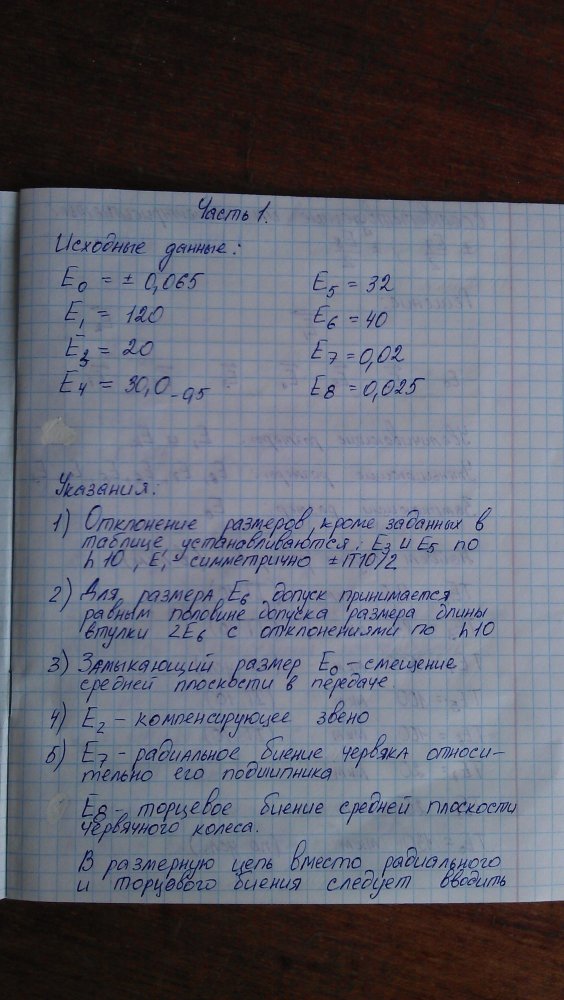 Часть 1.
Исходные данные:
E0 = ± 0,065 E5 = 32
E1 = 120 E6 = 40
E3 = 20 E7 = 0,02
E4 = 30,0-0,5 E8 = 0,025
Указания:
1) Отклонение размеров, кроме заданных в
таблице устанавливаются: E3 и E5 по
h10, E1 симметрично ± IT10/2
2) Для размера E6 допуск принимается
равным половине допуска размера длины
втулки 2E6 с отклонениями по h10
3) Замыкающий размер E0 - смещение
средней плоскости в передаче
4) E2 - компенсирующее звено
5) E7 - радиальное биение червяка относи-
тельно его подшипника
E8 - торцевое биение средней плоскости
червячного колеса.
В размерную цепь вместо радиального
и торцового биения следует вводить